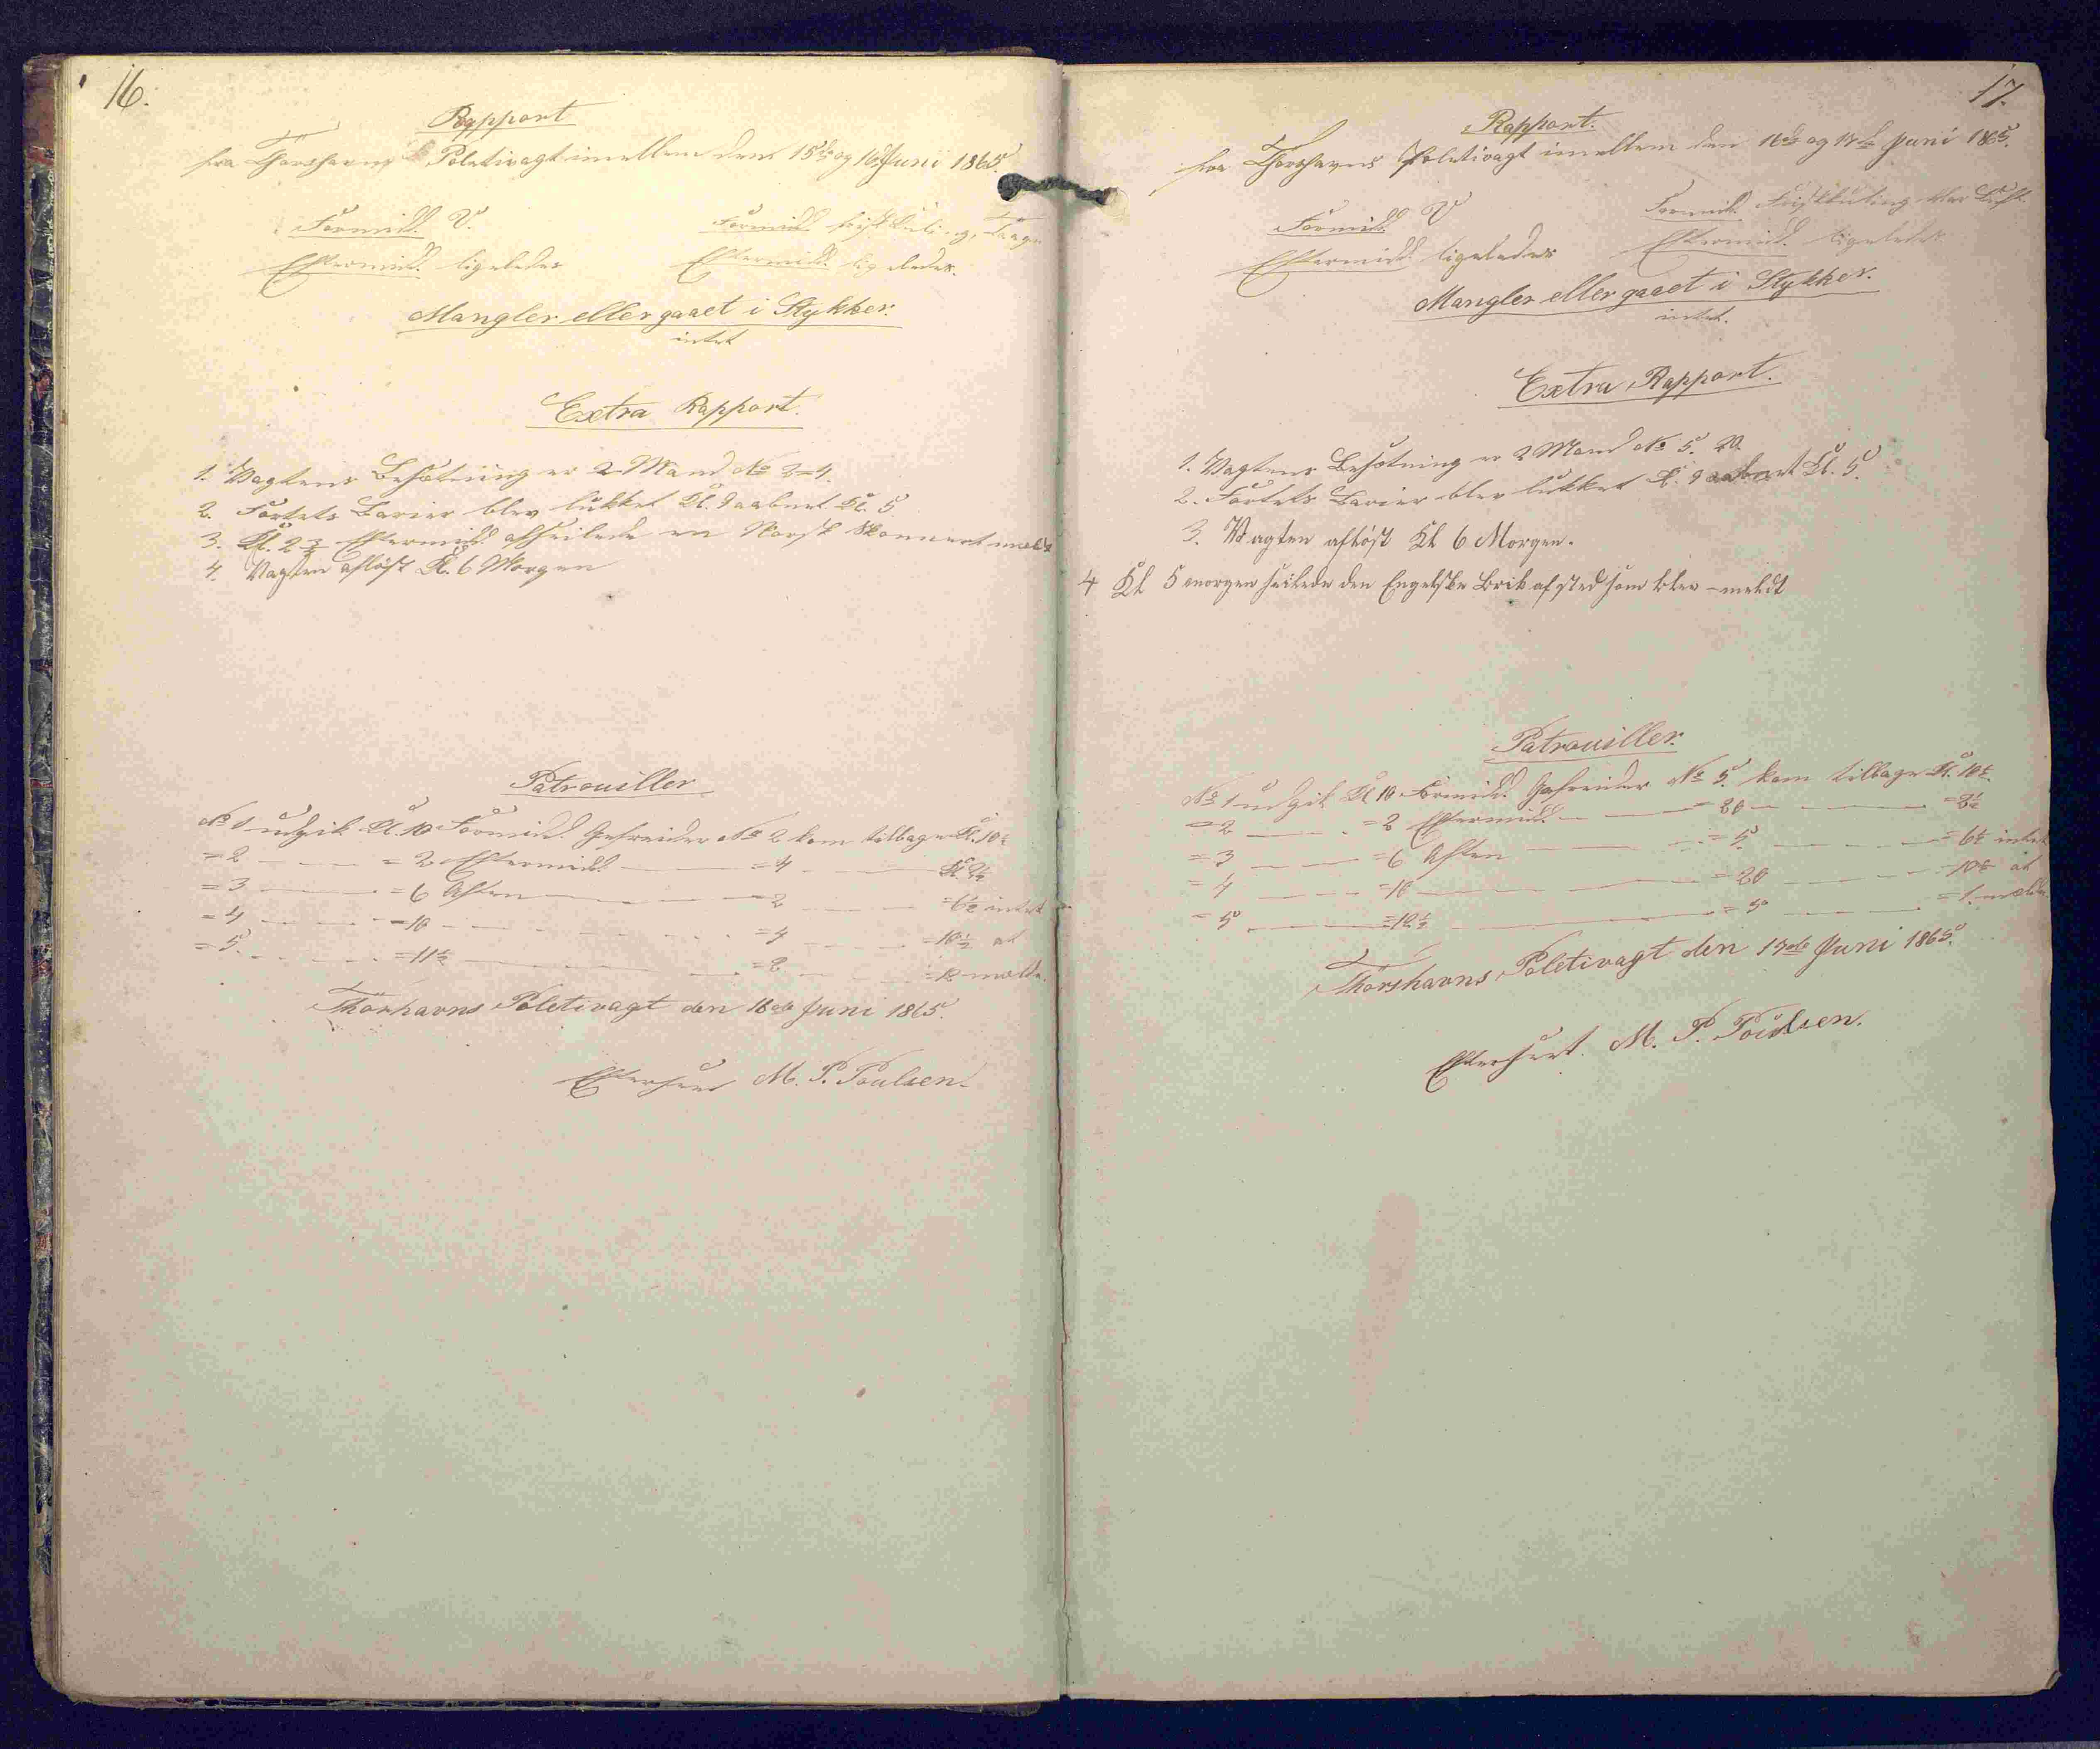 16.
Rapport
fra Thorshavns Politivagt imellem den 15de og 16de Juni 1865.
Formidd. V. Formidd. frisk Kuling, Taage
Eftermidd. ligeledes Eftermidd. ligeledes.
Mangler eller gaaet i Stykker.
intet
Extra Rapport.
1. Vagtens Besætning er 2 Mand No 2=4.
2. Fortets Barier blev lukket Kl. 9 aabnet Kl. 5
3. Kl. 2 3/4 Eftermidd afseilede en Norsk Skonnert
4. Vagten afløst Kl. 6 Morgen
Patrouiller
No 1 udgik Kl. 10 Formidd. Gefreider No 2 kom tilbage Kl. 10½
=2 — =2 Eftermidd. — =4 — Kl. 2½
=3 — =6 Aften — =2 — =6½ intet
=4 — =10 — =4 — =10½ at
=5. — =11½ — =2 — =12 melde.
Thorhavns Poletivagt den 16de Juni 1865.
M. P. Poulsen.
17.
Rapport.
fra Thorshavns Poletivagt imellem den 16de og 17de Juni 1865.
Formidd. V Formidd. Frisk Kuling klar Luft.
Eftermidd. ligeledes Eftermidd. ligeledes
Mangler eller gaaet i Stykker.
intet.
Extra Rapport.
1. Vagtens Besætning er 2 Mand No 5. 20.
2. Fortets Barier blev lukket Kl. 9 aabnet Kl. 5.
3. Vagten afløst Kl 6 Morgen.
4 Kl 5 morgen seilede den Engelske Brik afsted som blev meldt
Patrouiller.
No 1 udgik Kl 10 Formidd. Gefreider No 5. kom tilbage Kl. 10½.
=2 — =2 Eftermidd. — =20 — =2½
=3 — =6 Aften — =5. — =6½ intet
=4 — =10 — =20 — =10½ at
=5 — =12½ — =5 — =1. melde.
Thorshavns Poletivagt den 17de Juni 1865.
M. P. Poulsen.